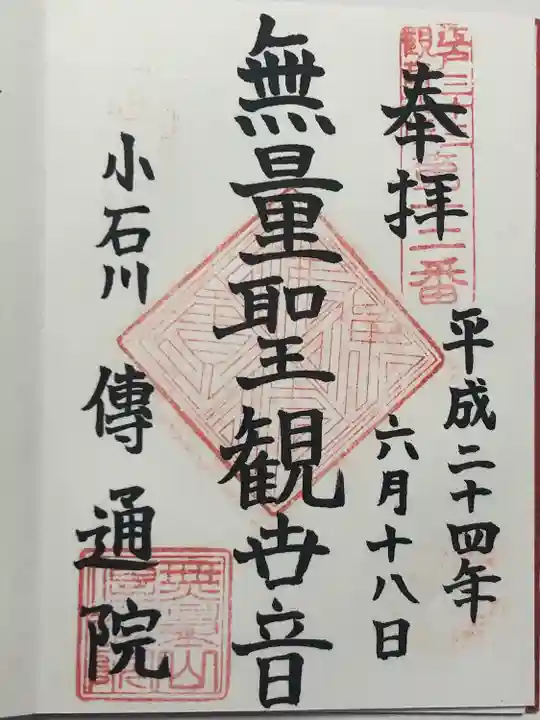 奉拝
平成二十四年
六月十八日
無量聖観世音
小石川 傳通院